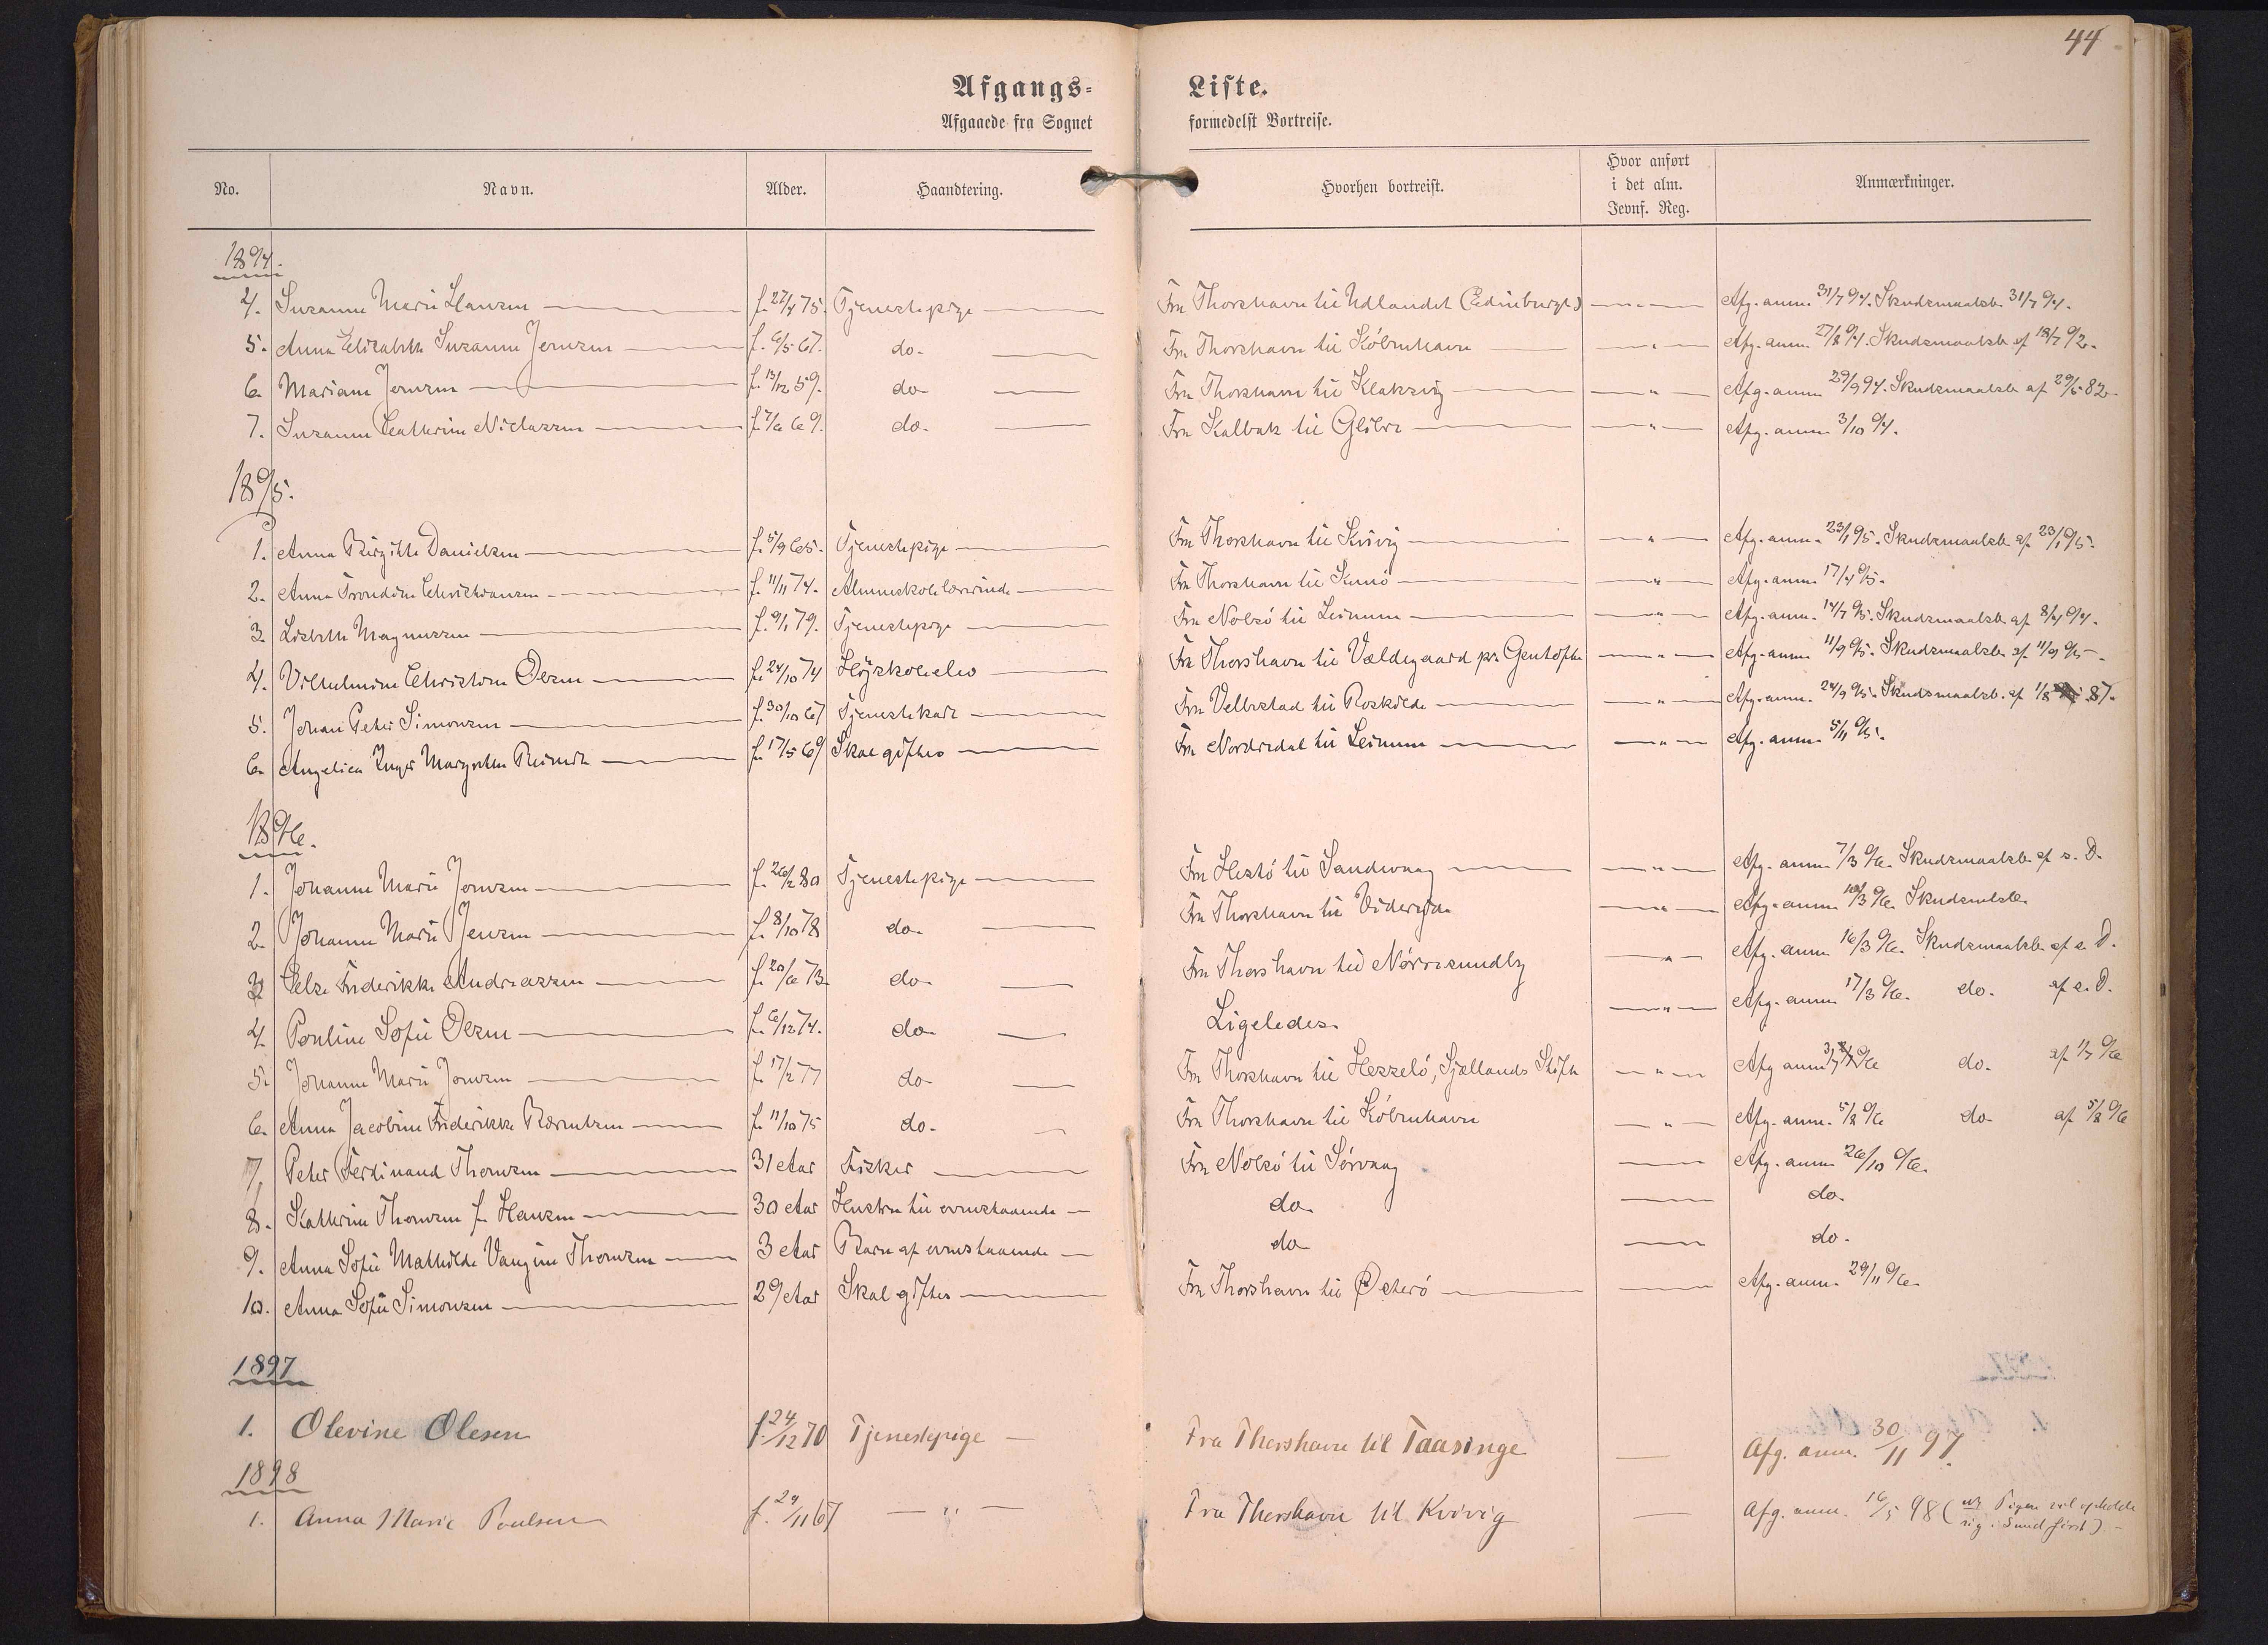 44
Afgangs= Liste.
Afgaaede fra Sognet formedelst Bortreise.
No. Navn. Alder. Haandtering. Hvorhen bortreist. Hvor anført i det alm. Jevnf. Reg. Anmærkninger.
1894.
4. Susanne Marie Hansen f. 27/4 75. Tjenestepige Fra Thorshavn til Udlandet (Edinburgh) — " — Afg. anm. 31/7 94. Skudsmaalsb. 31/7 94.
5. Anna Elisabeth Susanne Jensen f. 6/5 67. do. Fra Thorshavn til København — " — Afg. anm. 27/8 94. Skudsmaalsb. af 18/7 92.
6. Mariane Jensen f. 13/12 59. do. Fra Thorshavn til Klaksvig — " — Afg. anm. 29/9 94. Skudsmaalsb. af 29/5 82.
7. Susanne Cathrine Niclassen f. 7/6 69. do. Fra Kalbak til Glibre — " — Afg. anm. 3/10 94.
1895.
1. Anna Birgithe Danielsen f. 5/9 65. Tjenestepige Fra Thorshavn til Kvivig — " — Afg. anm. 23/1 95. Skudsmaalsb. af 23/1 95.
2. Anna Trondine Christiansen f. 11/11 74. Almueskolelærerinde Fra Thorshavn til Kunø — " — Afg. anm. 17/4 95.
3. Lisbeth Magnussen f. 9/1 79. Tjenestepige Fra Nolsø til Leinum — " — Afg. anm. 14/7 95. Skudsmaalsb. af 8/4 94.
4. Vilhelmine Christine Olsen f. 24/10 74 Højskoleelev Fra Thorshavn til Vældegaard pr. Gentofte — " — Afg. anm. 11/9 95. Skudsmaalsb. af 11/9 95.
5. Johan Peter Simonsen f. 30/10 67 Tjenestekarl Fra Velbestad til Roskilde — " — Afg. anm. 24/9 95. Skudsmaalsb. af 1/8 87.
6. Angelica Inger Margrethe Reinert f. 17/5 69 Skal giftes Fra Nordredal til Leinum — " — Afg. anm. 5/11 95.
1896.
1. Johanne Marie Jensen f. 26/2 80 Tjenestepige Fra Hestø til Sandevaag — " — Afg. anm. 7/3 96. Skudsmaalsb. af s. D.
2. Johanne Marie Jensen f. 8/10 78 do. Fra Thorshavn til Videreide — " — Afg. anm. 10/3 96. Skudsmlsb.
3. Else Frederikke Andreassen f. 20/6 73. do. Fra Thorshavn til Nørresundby — " — Afg. anm. 16/3 96. Skudsmaalsb. af s. D.
4. Pouline Sofie Olsen f. 6/12 74. do. Ligeledes. — " — Afg. anm. 17/3 96. do. af s. D.
5. Johanne Marie Jensen f. 17/2 77 do. Fra Thorshavn til Hesselø, Sjællands Stift — " — Afg. anm. 3/7 96 do. af 1/7 96
6. Anna Jacobine Frederikke Berentsen f. 11/10 75 do. Fra Thorshavn til København — " — Afg. anm. 5/8 96 do. af 5/8 96
7. Peter Ferdinand Thomsen 31 Aar Fisker Fra Nolsø til Sørvaag Afg. anm. 26/10 96.
8. Kathrine Thomsen f. Hansen 30 Aar Hustru til ovenstaaende do. do.
9. Anna Sofie Mathilde Vangine Thomsen 3 Aar Barn af ovenstaaende do. do.
10. Anna Sofie Simonsen 29 Aar Skal giftes Fra Thorshavn til Østerø Afg. anm. 29/11 96.
1897
1. Olevine Olesen f. 24/12 70 Tjenestepige Fra Thorshavn til Taasinge Afg. anm. 30/11 97.
1898
1. Anna Marie Poulsen f. 24/11 67 — " — Fra Thorshavn til Kvivig Afg. anm. 16/5 98 ( Pigen vil opholde
sig i Sund først).